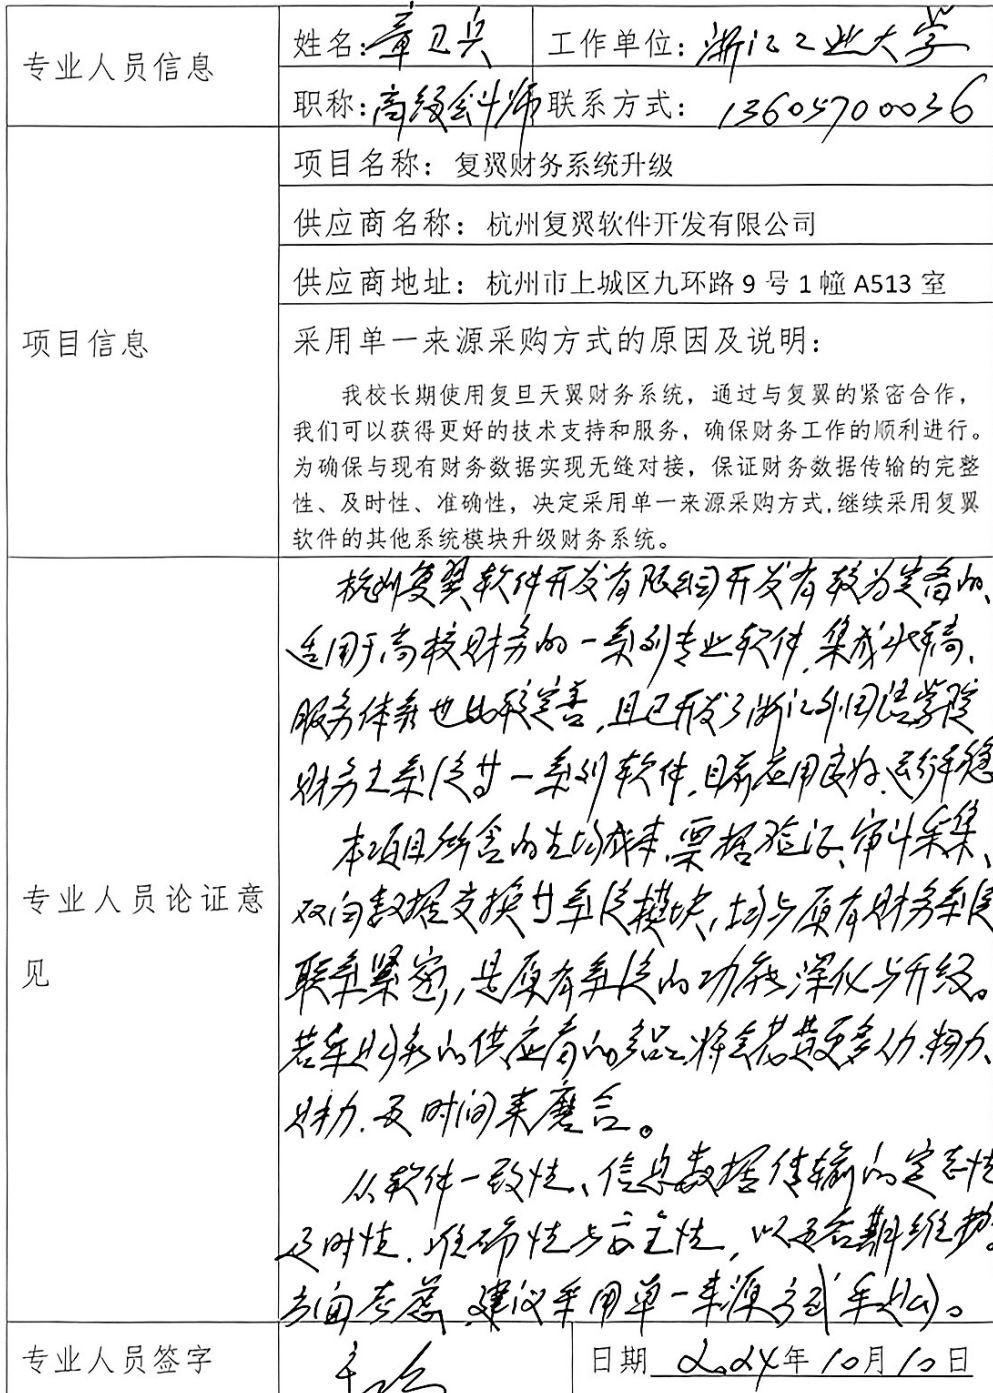 专业人员信息
姓名:章卫兵 工作单位:浙江工业大学
职称:高级会计师 联系方式: 13605700036
项目信息
项目名称:复翼财务系统升级
供应商名称:杭州复翼软件开发有限公司
供应商地址:杭州市上城区九环路9号1幢A513室
采用单一来源采购方式的原因及说明:
我校长期使用复旦天翼财务系统,通过与复翼的紧密合作,
我们可以获得更好的技术支持和服务,确保财务工作的顺利进行。
为确保与现有财务数据实现无缝对接,保证财务数据传输的完整
性、及时性、准确性,决定采用单一来源采购方式,继续采用复翼
软件的其他系统模块升级财务系统。
专业人员论证意
见
杭州复翼软件开发有限公司开发有较为完备的、
适用于高校财务的一系列专业软件,集成度高、
服务体系也比较完善,且已开发了浙江外国语学院
财务主系统等一系列软件,目前应用良好、运行平稳
本项目所含的生均成本、票据验证、审计采集、
双向数据交换等系统模块,均与原有财务系统
联系紧密,是原有系统的功能深化与升级。
若采购别的供应商的产品,将会花费更多人力、物力、
财力、及时间来磨合。
从软件一致性、信息数据传输的完整性
及时性、准确性与安全性,以及后期维护
方面考虑,建议采用单一来源方式采购。
专业人员签字
日期 2024年10月10日